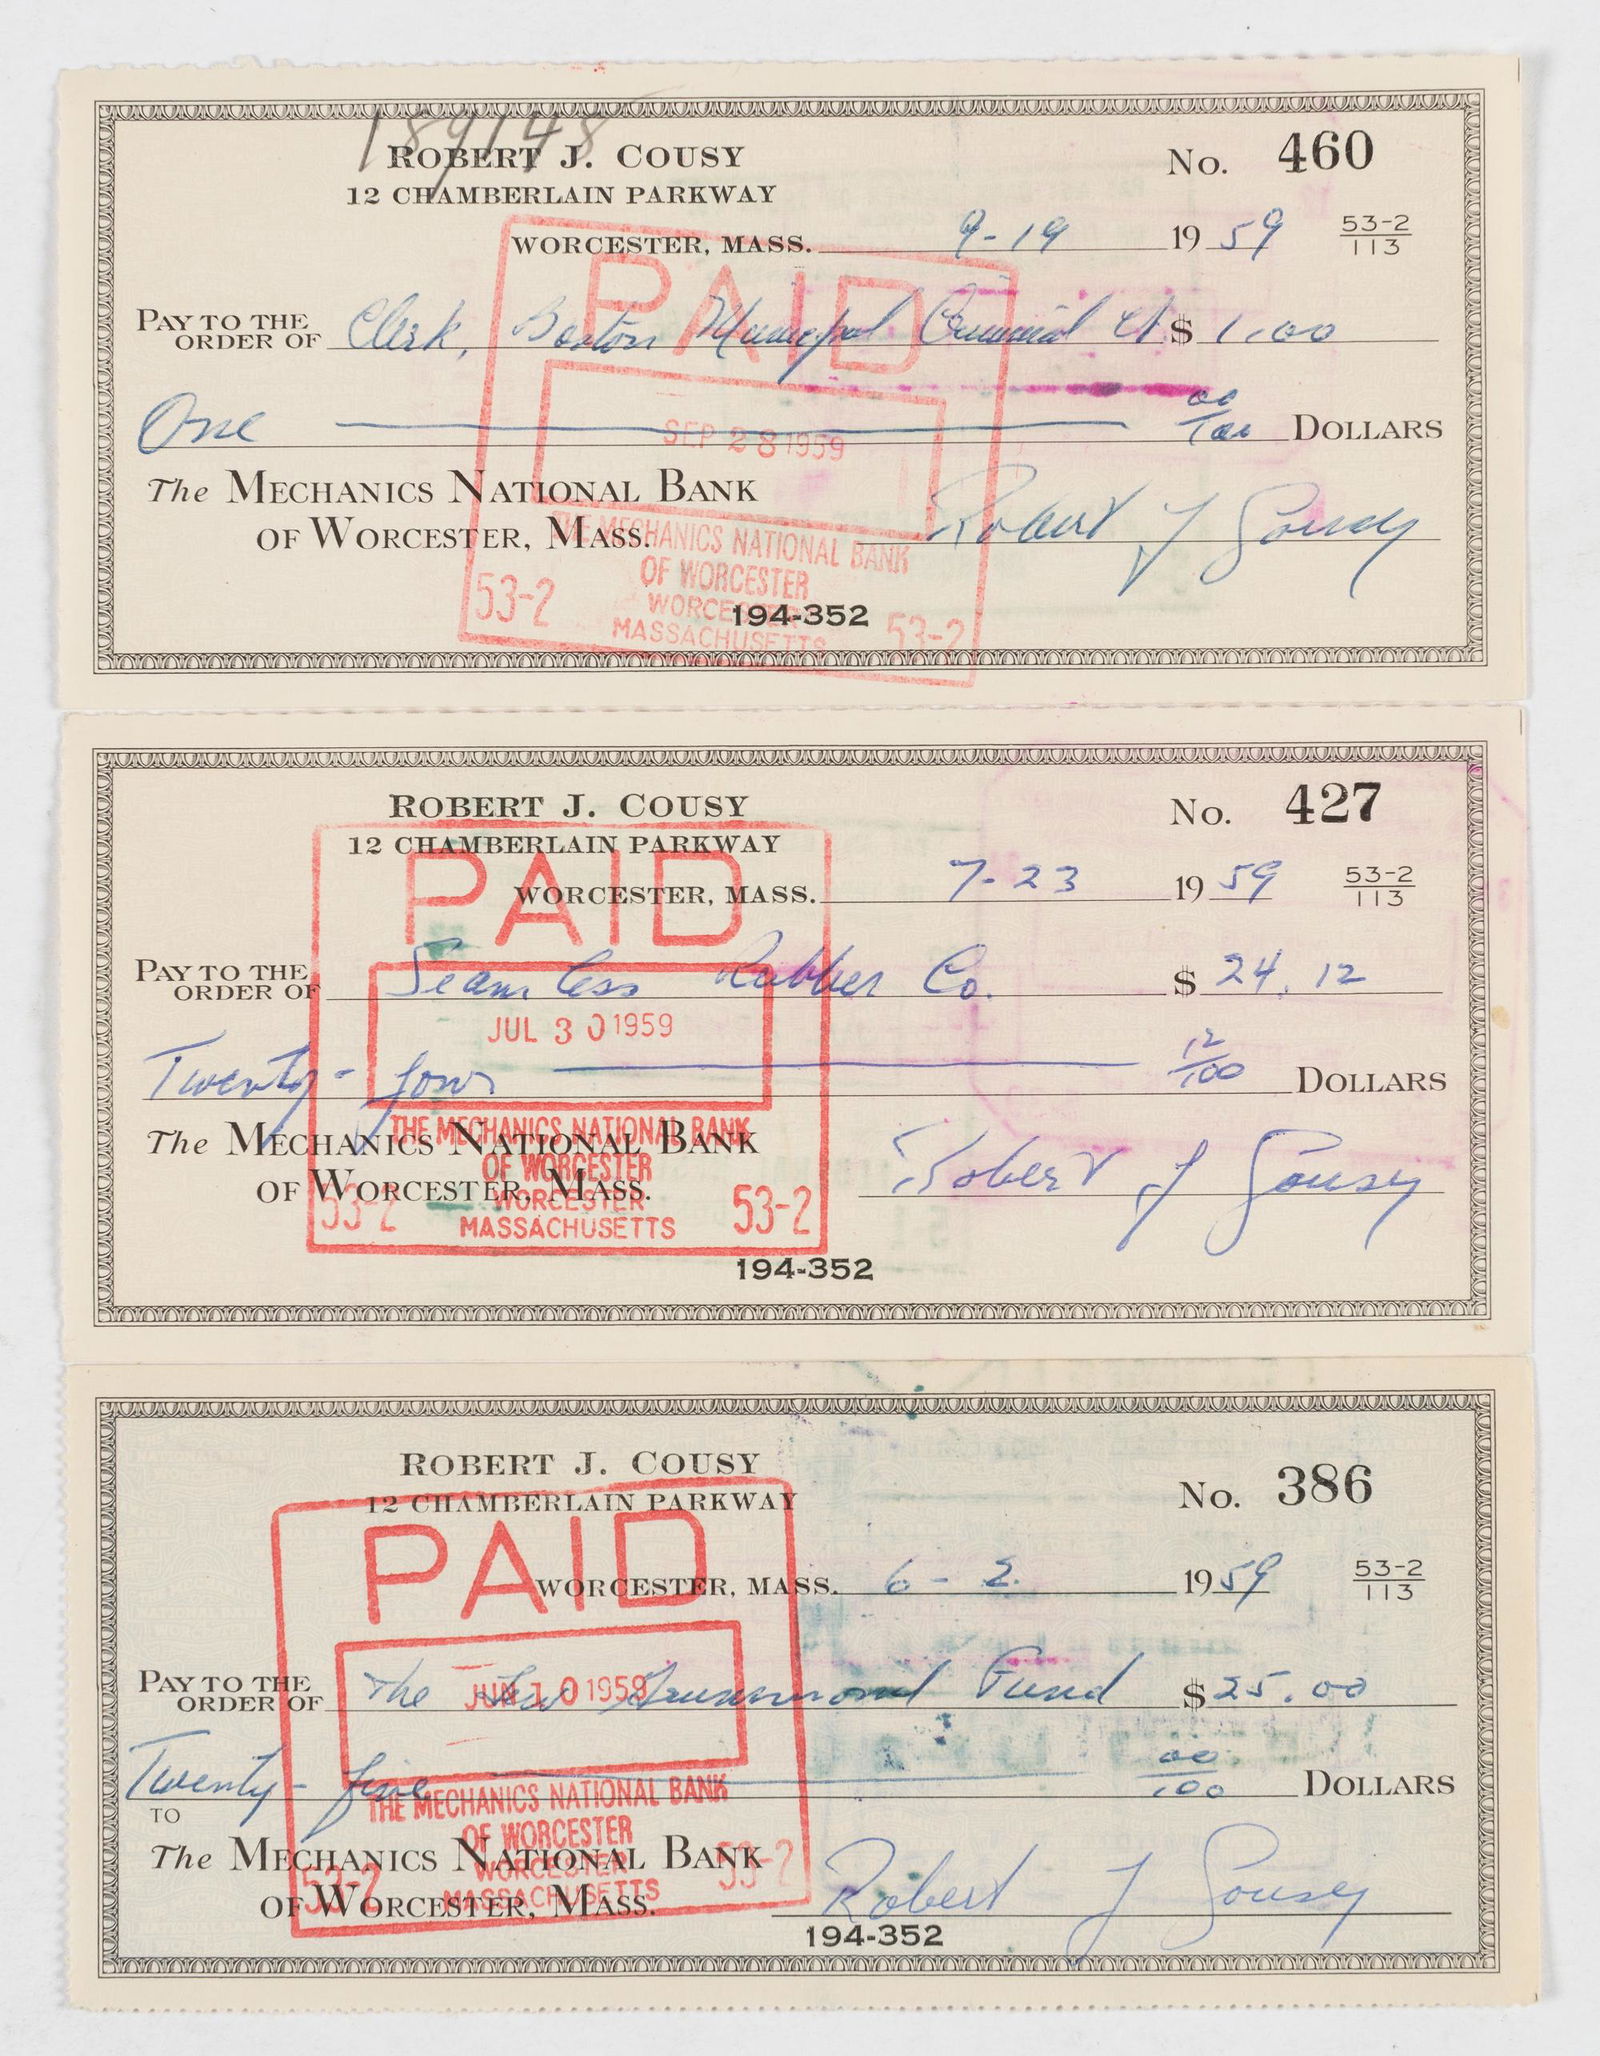 189148
ROBERT J. COUSY
No. 460
12 CHAMBERLAIN PARKWAY
WORCESTER, MASS. 9-19 19 59 53-2/113
PAY TO THE ORDER OF Clerk, Boston Municipal Criminal Ct $ 1.00
One 00/100 DOLLARS
The MECHANICS NATIONAL BANK
OF WORCESTER, MASS.
Robert J Cousy
194-352
PAID
SEP 28 1959
THE MECHANICS NATIONAL BANK
OF WORCESTER
WORCESTER
MASSACHUSETTS
53-2 53-2
ROBERT J. COUSY
No. 427
12 CHAMBERLAIN PARKWAY
WORCESTER, MASS. 7-23 19 59 53-2/113
PAY TO THE ORDER OF Seamless Rubber Co. $ 24.12
Twenty-four 12/100 DOLLARS
The MECHANICS NATIONAL BANK
OF WORCESTER, MASS.
Robert J Cousy
194-352
PAID
JUL 30 1959
THE MECHANICS NATIONAL BANK
OF WORCESTER
WORCESTER
MASSACHUSETTS
53-2 53-2
ROBERT J. COUSY
No. 386
12 CHAMBERLAIN PARKWAY
WORCESTER, MASS. 6-2 19 59 53-2/113
PAY TO THE ORDER OF The Fund $ 25.00
Twenty-five 00/100 DOLLARS
TO
The MECHANICS NATIONAL BANK
OF WORCESTER, MASS.
Robert J Cousy
194-352
PAID
JUN 10 1959
THE MECHANICS NATIONAL BANK
OF WORCESTER
WORCESTER
MASSACHUSETTS
53-2 53-2